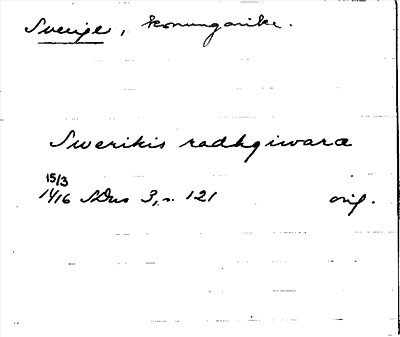 Sverige, konungarike.
Swerikis radhgiwara
15/3
1416 SDns 3, s. 121 orig.